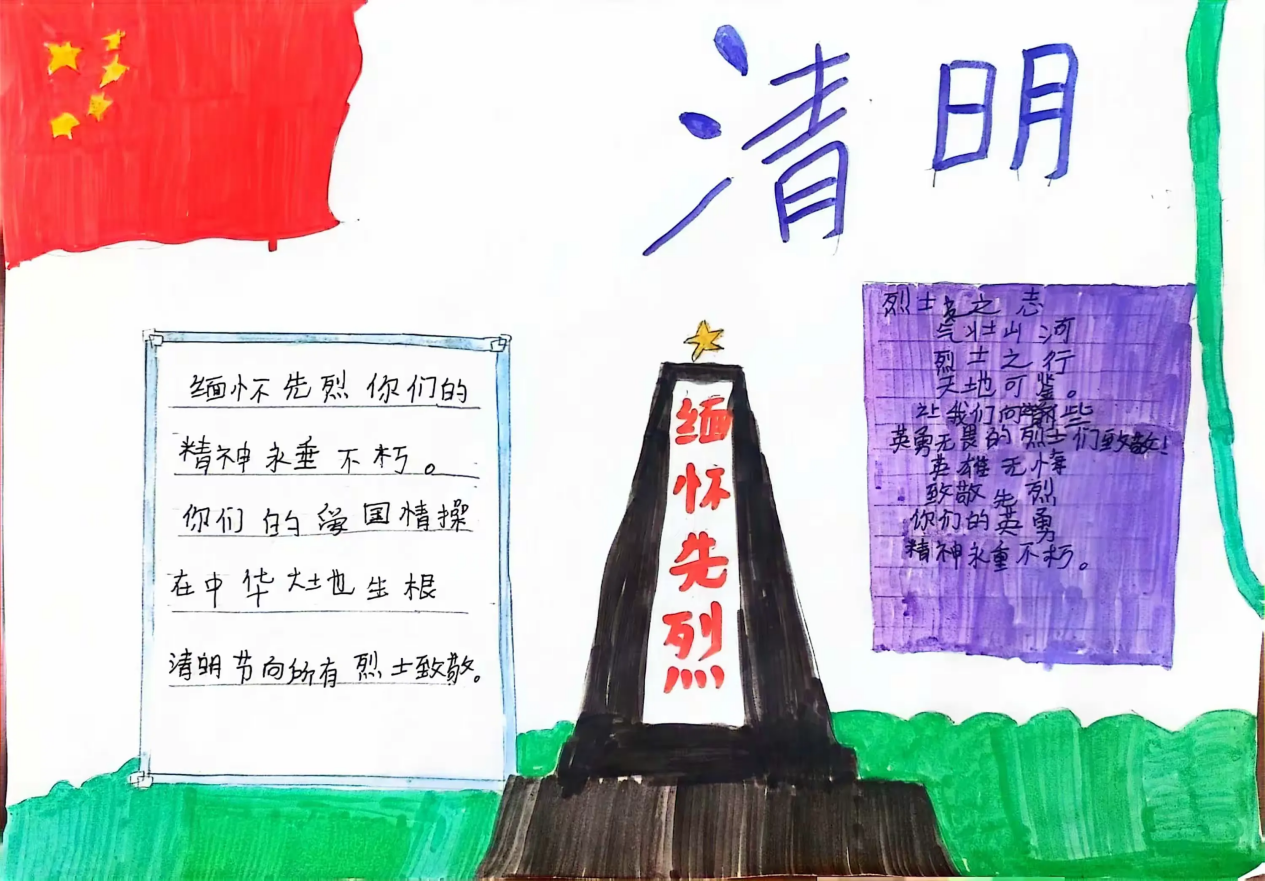 清明
缅怀先烈你们的
精神永垂不朽。
你们的爱国情操
在中华大地生根
清明节向所有烈士致敬。
缅怀先烈
烈士之志
气壮山河
烈士之行
天地可鉴。
让我们向那些
英勇无畏的烈士们致敬!
英雄无悔
致敬先烈
你们的英勇
精神永垂不朽。